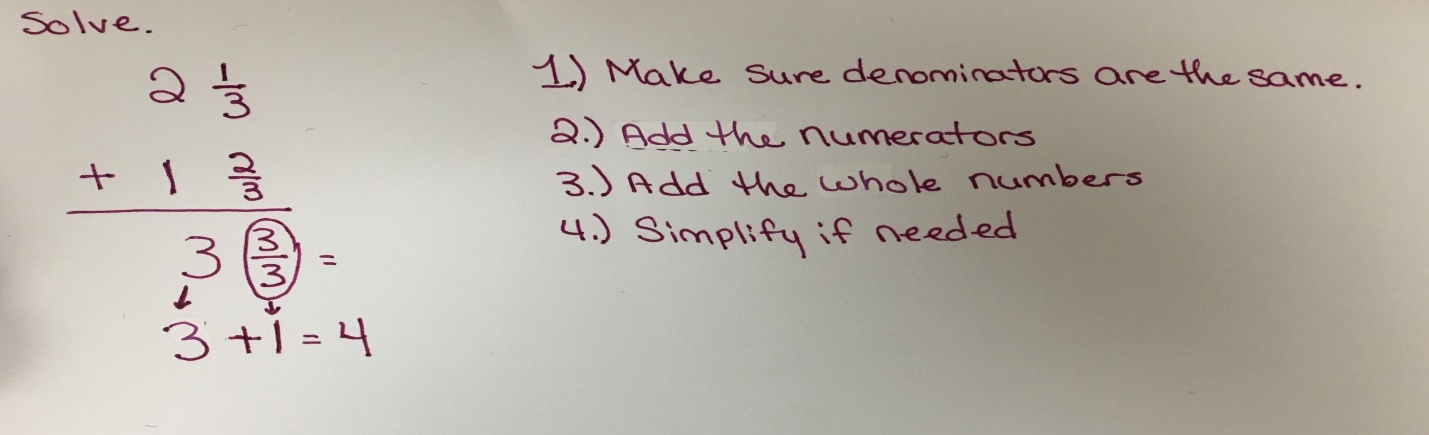 Solve.
2 1/3
+ 1 2/3
3 3/3 =
3 + 1 = 4
1.) Make sure denominators are the same.
2.) Add the numerators
3.) Add the whole numbers
4.) Simplify if needed